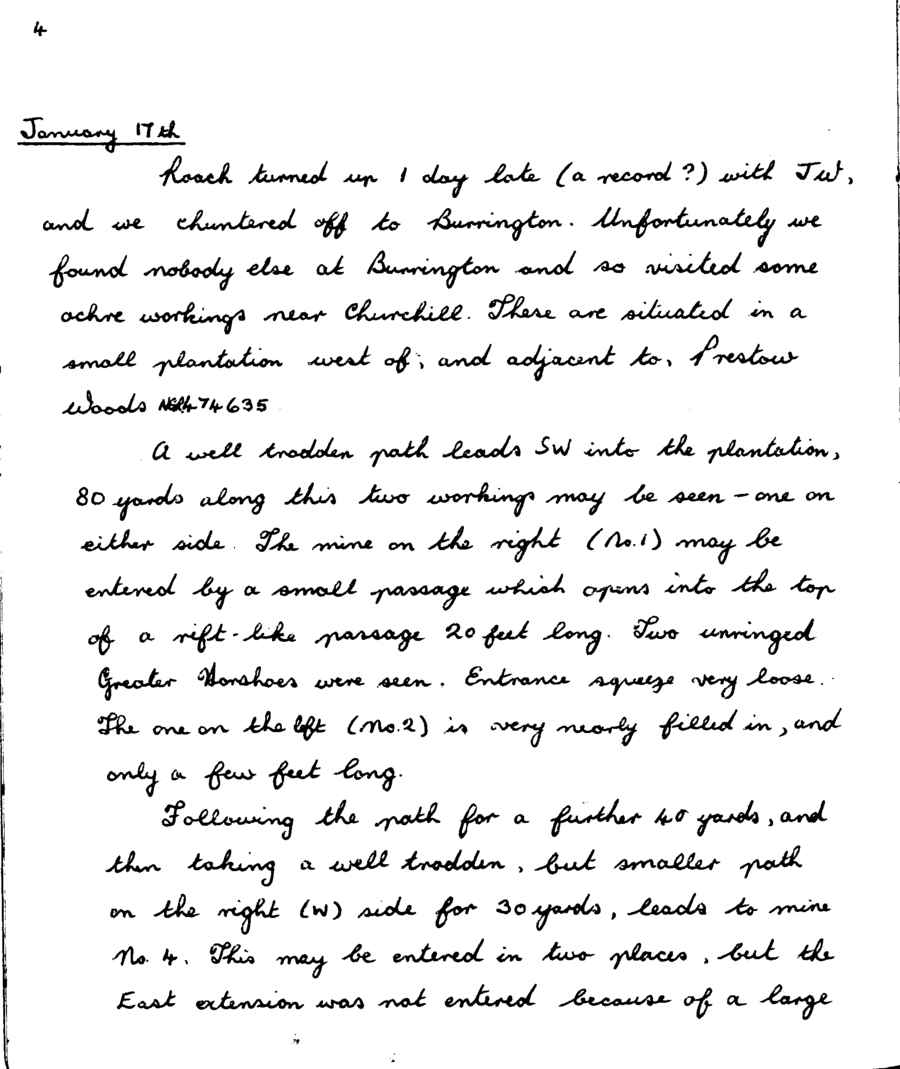 4
January 17th
Roach turned up 1 day late (a record?) with JW,
and we chuntered off to Burrington. Unfortunately we
found nobody else at Burrington and so visited some
ochre workings near Churchill. These are situated in a
small plantation west of, and adjacent to, Prestow
Woods 474635
A well trodden path leads SW into the plantation,
80 yards along this two workings may be seen - one on
either side. The mine on the right (No.1) may be
entered by a small passage which opens into the top
of a rift-like passage 20 feet long. Two unringed
Greater Horshoes were seen. Entrance squeeze very loose.
The one on the left (No.2) is very nearly filled in, and
only a few feet long.
Following the path for a further 40 yards, and
then taking a well trodden, but smaller path
on the right (W) side for 30 yards, leads to mine
No. 4. This may be entered in two places, but the
East extension was not entered because of a large